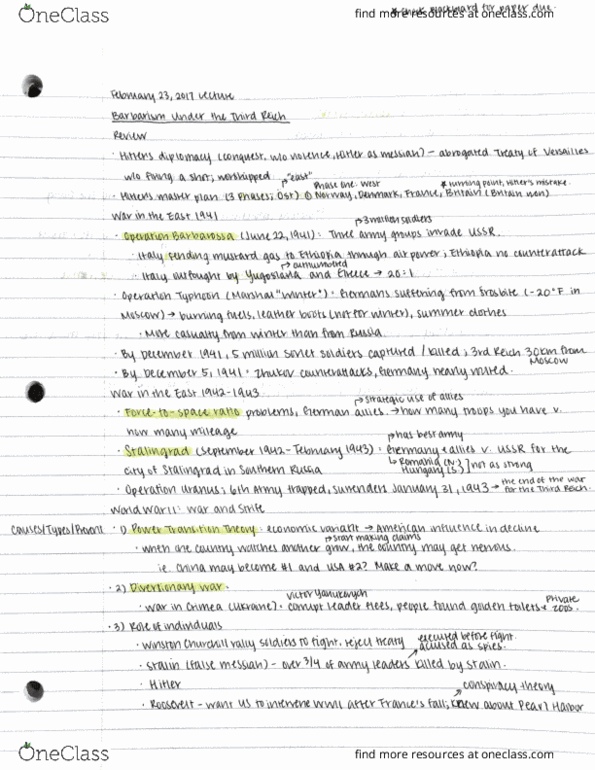 OneClass
find more resources at oneclass.com
* check blackboard for paper due.
February 23, 2017 Lecture
Barbarism Under the Third Reich
Review
· Hitler's diplomacy (conquest w/o violence, Hitler as messiah) - abrogated Treaty of Versailles
w/o firing a shot; worshipped
"east" Phase one: West * turning point, Hitler's mistake.
· Hitler's master plan (3 phases; Ost) ① Norway, Denmark, France, Britain (Britain won)
War in the East 1941
3 million soldiers
· Operation Barbarossa (June 22, 1941): Three army groups invade USSR.
· Italy sending mustard gas to Ethiopia through air power; Ethiopia no counterattack
outnumbered
· Italy outfought by Yugoslavia and Greece → 20:1
· Operation Typhoon (Marshal "Winter"): Germans suffering from frosbite (-20°F in
Moscow) → burning fuels, leather boots (not for winter), summer clothes
· More casualty from winter than from Russia.
· By December 1941, 5 million soviet soldiers captured / killed; 3rd Reich 30km from
Moscow
· By December 5, 1941 - Zhukov counterattacks, Germany nearly routed.
War in the East 1942-1943
strategic use of allies
· Force-to-space ratio problems, German allies. → how many troops you have v.
how many mileage
has best army
· Stalingrad (September 1942-February 1943): Germany + allies v. USSR for the
city of Stalingrad in Southern Russia
Romania (N.)
Hungary (S.) ] not as strong
· Operation Uranus; 6th Army trapped, surrenders January 31, 1943 → the end of the war
for the Third Reich.
World War II: War and Strife
Causes/Types/Prevent · 1) Power Transition Theory: economic variant → American influence in decline
start making claims
· when one country watches another grow, the country may get nervous.
i.e. China may become #1 and USA #2? Make a move now?
· 2) Diversionary war.
Victor Yanukovych
· War in Crimea (Ukraine). corrupt leader flees, people found golden toilets + private
zoos.
· 3) Role of individuals
· Winston Churchill rally soldiers to fight. reject treaty
executed before fight.
accused as spies.
· Stalin (false messiah) - over 3/4 of army leaders killed by Stalin.
· Hitler
conspiracy theory
· Roosevelt - want US to intervene WWII after France's fall; knew about Pearl Harbor
OneClass
find more resources at oneclass.com